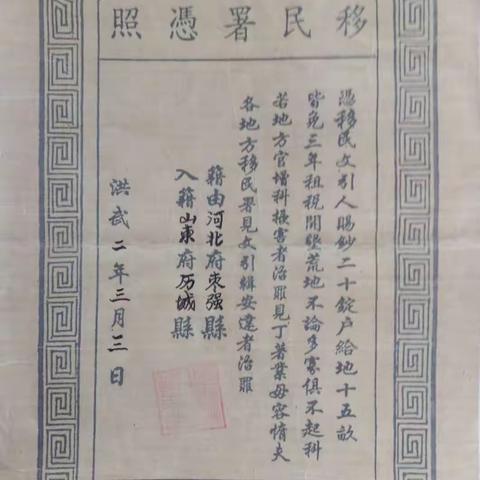 移民署憑照
憑移民文引人賜鈔二十錠户給地十五畝
皆免三年租税開墾荒地不論多寡俱不起科
若地方官增科擾害者治罪見丁著業毋容惰夫
各地方移民署見文引輯安違者治罪
籍由河北府枣强縣
入籍山東府历城縣
洪武二年三月三日